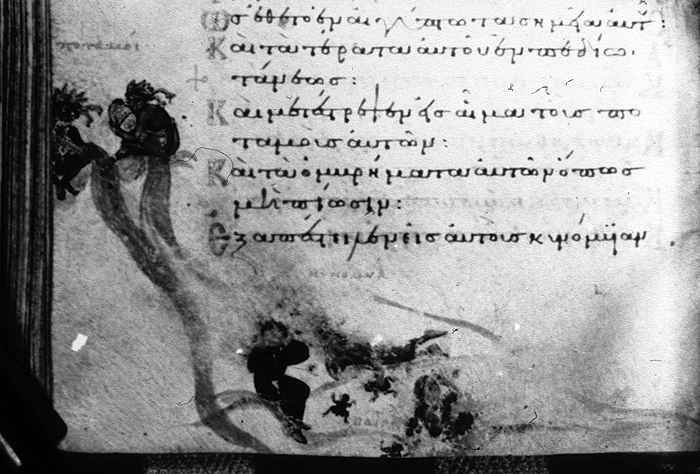 Ὡς ἔθετο ἐν αἰγύπτω τὰ σημεῖα αὐτ:
Καὶ τὰ τέρατα αὐτοῦ ἐν πεδίω
τάνεως:
Καὶ μετέστρεψεν εἰς αἷμα τοὺς πο
ταμοὺς αὐτῶν:
Καὶ τὰ ὀμβρήματα αὐτῶν ὅπως
μὴ πίωσιν:
Ἐξαπέστειλεν εἰς αὐτοὺς κυνόμυιαν